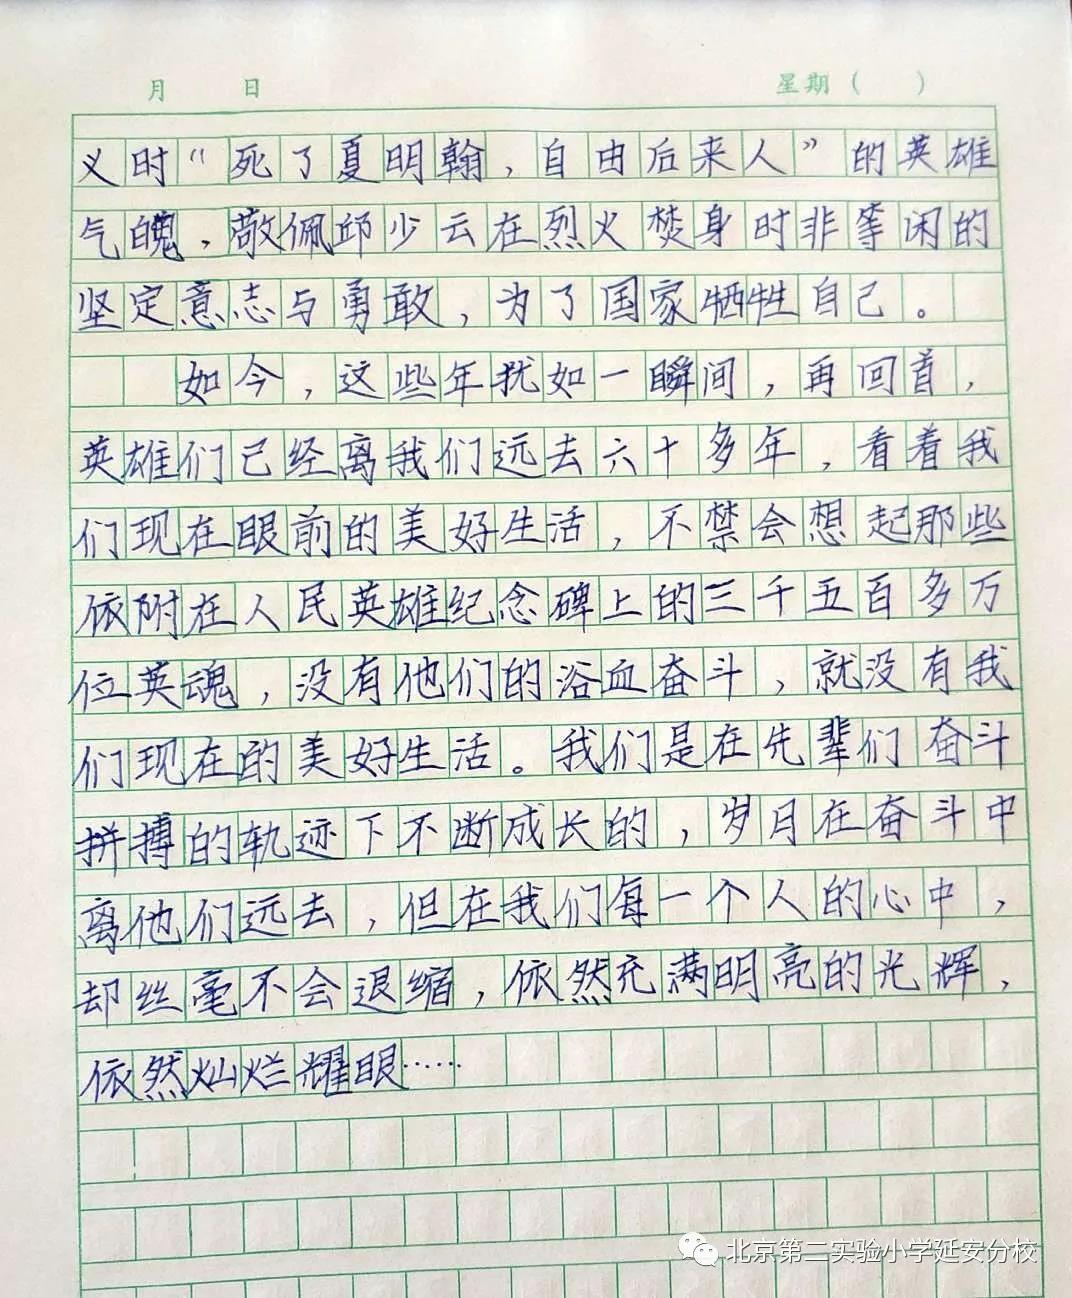 月 日 星期( )
义时“死了夏明翰，自由后来人”的英雄
气魄，敬佩邱少云在烈火焚身时非等闲的
坚定意志与勇敢，为了国家牺牲自己。
如今，这些年犹如一瞬间，再回首，
英雄们已经离我们远去六十多年，看着我
们现在眼前的美好生活，不禁会想起那些
依附在人民英雄纪念碑上的三千五百多万
位英魂，没有他们的浴血奋斗，就没有我
们现在的美好生活。我们是在先辈们奋斗
拼搏的轨迹下不断成长的，岁月在奋斗中
离他们远去，但在我们每一个人的心中，
却丝毫不会退缩，依然充满明亮的光辉，
依然灿烂耀眼……
北京第二实验小学延安分校